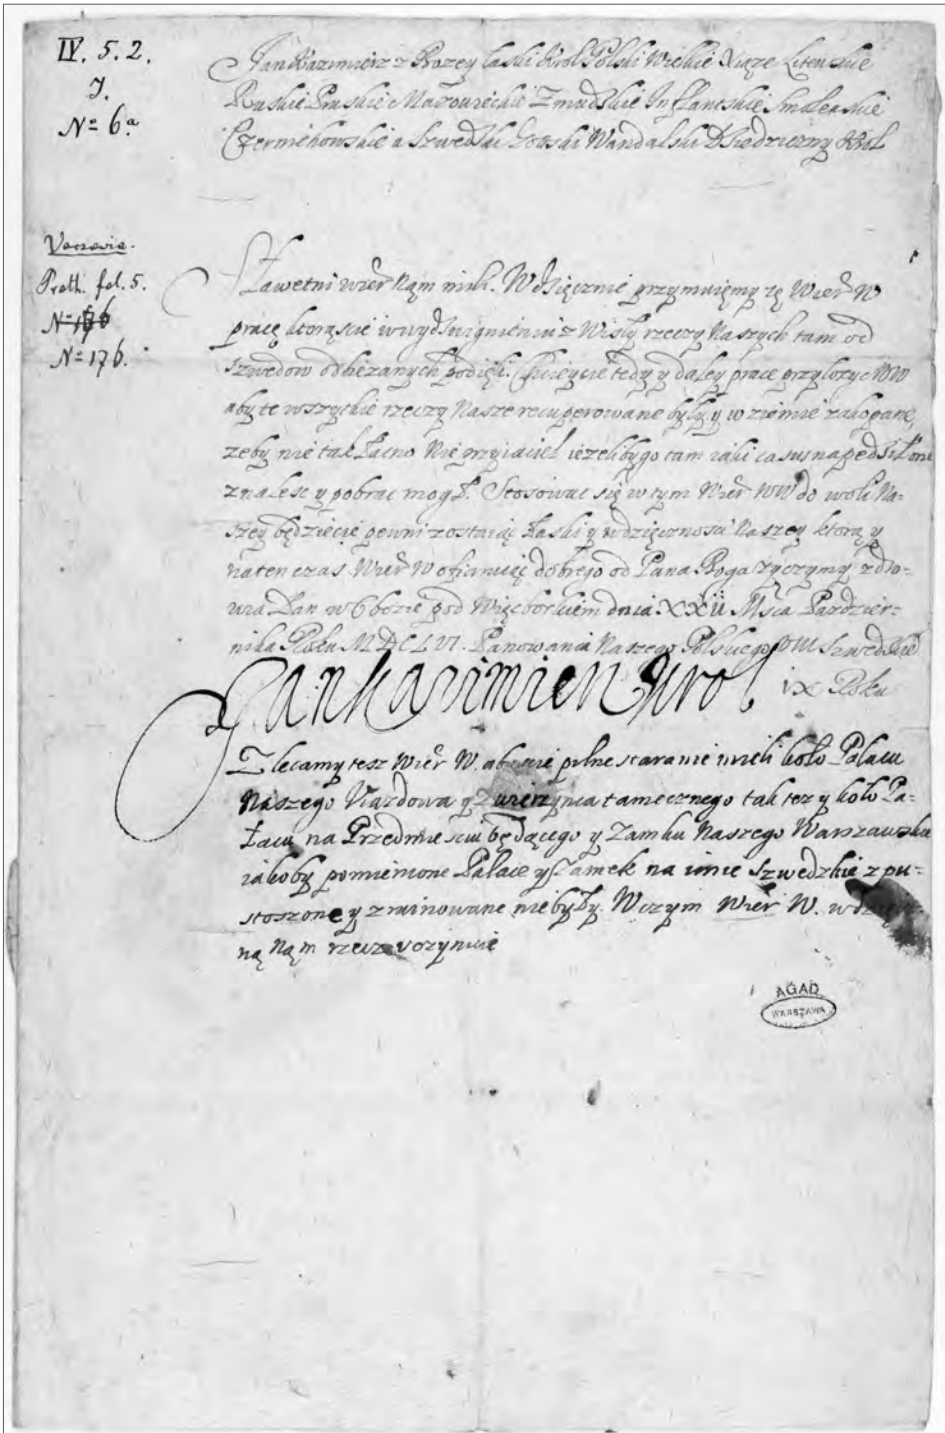 IV. 5. 2.
J.
Nº 6ª
Jan Kazimierz z Bozey łaski Krol Polski Wielkie Xiąze Litewskie
Ruskie Pruskie Mazowieckie Zmudzkie Inflantskie Smolenskie
Czerniehowskie a Szwedski Gotski Wandalski Dziedziczny Krol
Varsavia.
Proth. fol. 5.
Nº 176.
Sławetni wier Nąm mili. Wdzięcznie przymuięmy tę Wier W
pracę ktorąscie w wydzwignieniu z Wisły rzeczy Naszych tam od
Szwedow odbezanych podięli. Chcieycie tedy y daley prace przylozyc WW
aby te wszytkie rzeczy Nasze recuperowane były y w ziemie zakopane,
zeby nie tak łacno Nieprzyiaciel iezeliby go tam iaki casus napędził one
znalesc y pobrac mogł. Stosowac się w tym Wier WW do woli Na-
szey będziecie pewni zostaiąc łaski y wdzięcznosci Naszey ktorą y
na ten czas Wier W ofiaruiąc dobrego od Pana Boga zyczymy zdro-
wia Dan w Obozie pod Więcborkiem dnia XXii Msca Pazdzier-
nika Roku MDCLVI. Panowania Naszego Polskiego VIII Szwedzkie
IX Roku
Jan Kazimierz Krol
Zlecamy tesz Wier W. abyscie pilne staranie mieli koło Pałacu
Naszego Viazdowa y Zwierzynca tamecznego tak tez y koło Pa-
łacu na Przedmiesciu będącego y Zamku Naszego Warszawskie
iakoby pomienione Pałace y Zamek na imie Szwedzkie zpu-
stoszone y zruinowane niebyły. W czym Wier W.
ną Nąm rzecz vczynicie
AGAD
WARSZAWA